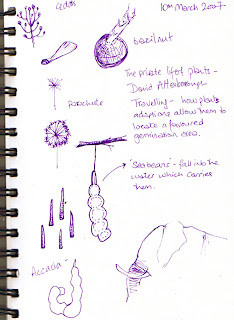 10th March 2007
brazil nut
The private life of plants -
David Attenborough
Parachute
Travelling - how plants
adaptions allow them to
locate a favoured
germination area.
'Seabeans' - fall into the
water which carries
them.
Accacia -